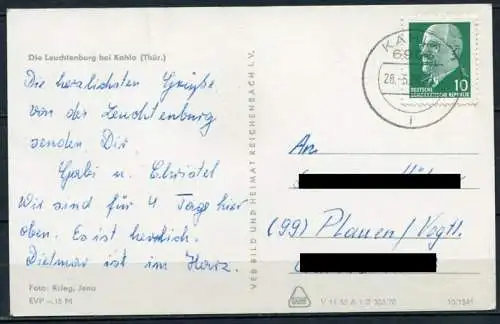 Die Leuchtenburg bei Kahla (Thür.)
Die herzlichsten Grüße
von der Leuchtenburg
senden Dir
Gabi u. Christel
Wir sind für 4 Tage hier
oben. Es ist herrlich.
Dietmar ist im Harz.
Foto: Krieg, Jena
EVP –.15 M
VEB BILD UND HEIMAT REICHENBACH I. V.
DEUTSCHE
DEMOKRATISCHE REPUBLIK
10
An
(99) Plauen/Vogtl.